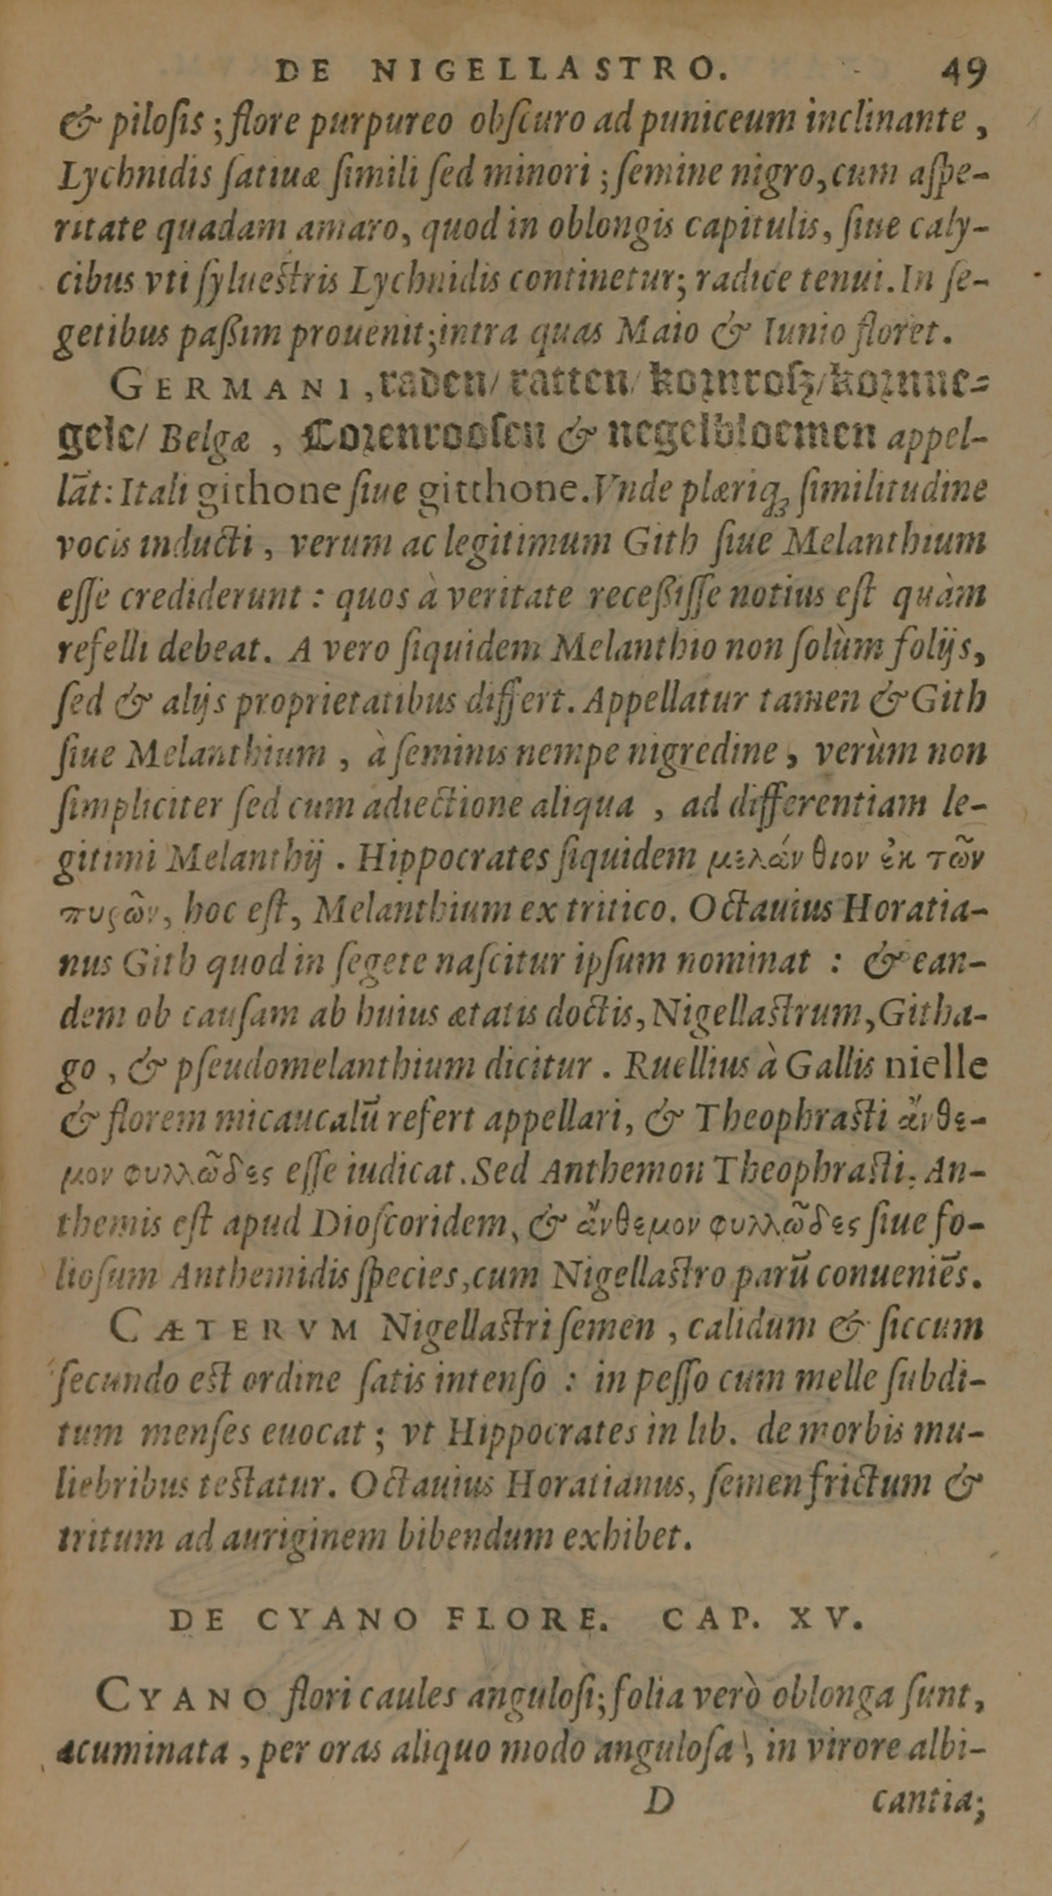 DE NIGELLASTRO. 49
& piloſis ; flore purpureo obſcuro ad puniceum inclinante ,
Lychnidis ſatiuæ ſimili ſed minori ; ſemine nigro, cum aſpe-
ritate quadam amaro, quod in oblongis capitulis, ſiue caly-
cibus vti ſylueſtris Lychnidis continetur; radice tenui. In ſe-
getibus paßim prouenit; intra quas Maio & Iunio floret.
GERMANI, raden/ ratten/ kornroſz/ kornne=
gele/ Belgæ , Corenrooſen & negelbloemen appel-
lāt: Itali githone ſiue gitthone. Vnde plæriqꝫ ſimilitudine
vocis inducti , verum ac legitimum Gith ſiue Melanthium
eſſe crediderunt : quos à veritate receßiſſe notius eſt quàm
refelli debeat. A vero ſiquidem Melanthio non ſolùm folijs,
ſed & alijs proprietatibus differt. Appellatur tamen & Gith
ſiue Melanthium , à ſeminis nempe nigredine , verùm non
ſimpliciter ſed cum adiectione aliqua , ad differentiam le-
gitimi Melanthij . Hippocrates ſiquidem μελάνθιον ἐκ τῶν
πυρῶν, hoc eſt, Melanthium ex tritico. Octauius Horatia-
nus Gith quod in ſegete naſcitur ipſum nominat : & ean-
dem ob cauſam ab huius ætatis doctis, Nigellaſtrum, Githa-
go , & pſeudomelanthium dicitur . Ruellius à Gallis nielle
& florem micaucalū refert appellari, & Theophraſti ἄνθε-
μον φυλλῶδες eſſe iudicat. Sed Anthemon Theophraſti, An-
themis eſt apud Dioſcoridem, & ἄνθεμον φυλλῶδες ſiue fo-
lioſum Anthemidis ſpecies, cum Nigellaſtro parū conueniēs.
CÆTERVM Nigellaſtri ſemen , calidum & ſiccum
ſecundo eſt ordine ſatis intenſo : in peſſo cum melle ſubdi-
tum menſes euocat ; vt Hippocrates in lib. de morbis mu-
liebribus teſtatur. Octauius Horatianus, ſemen frictum &
tritum ad auriginem bibendum exhibet.
DE CYANO FLORE. CAP. XV.
CYANO flori caules anguloſi; folia verò oblonga ſunt,
acuminata , per oras aliquo modo anguloſa , in virore albi-
D cantia;